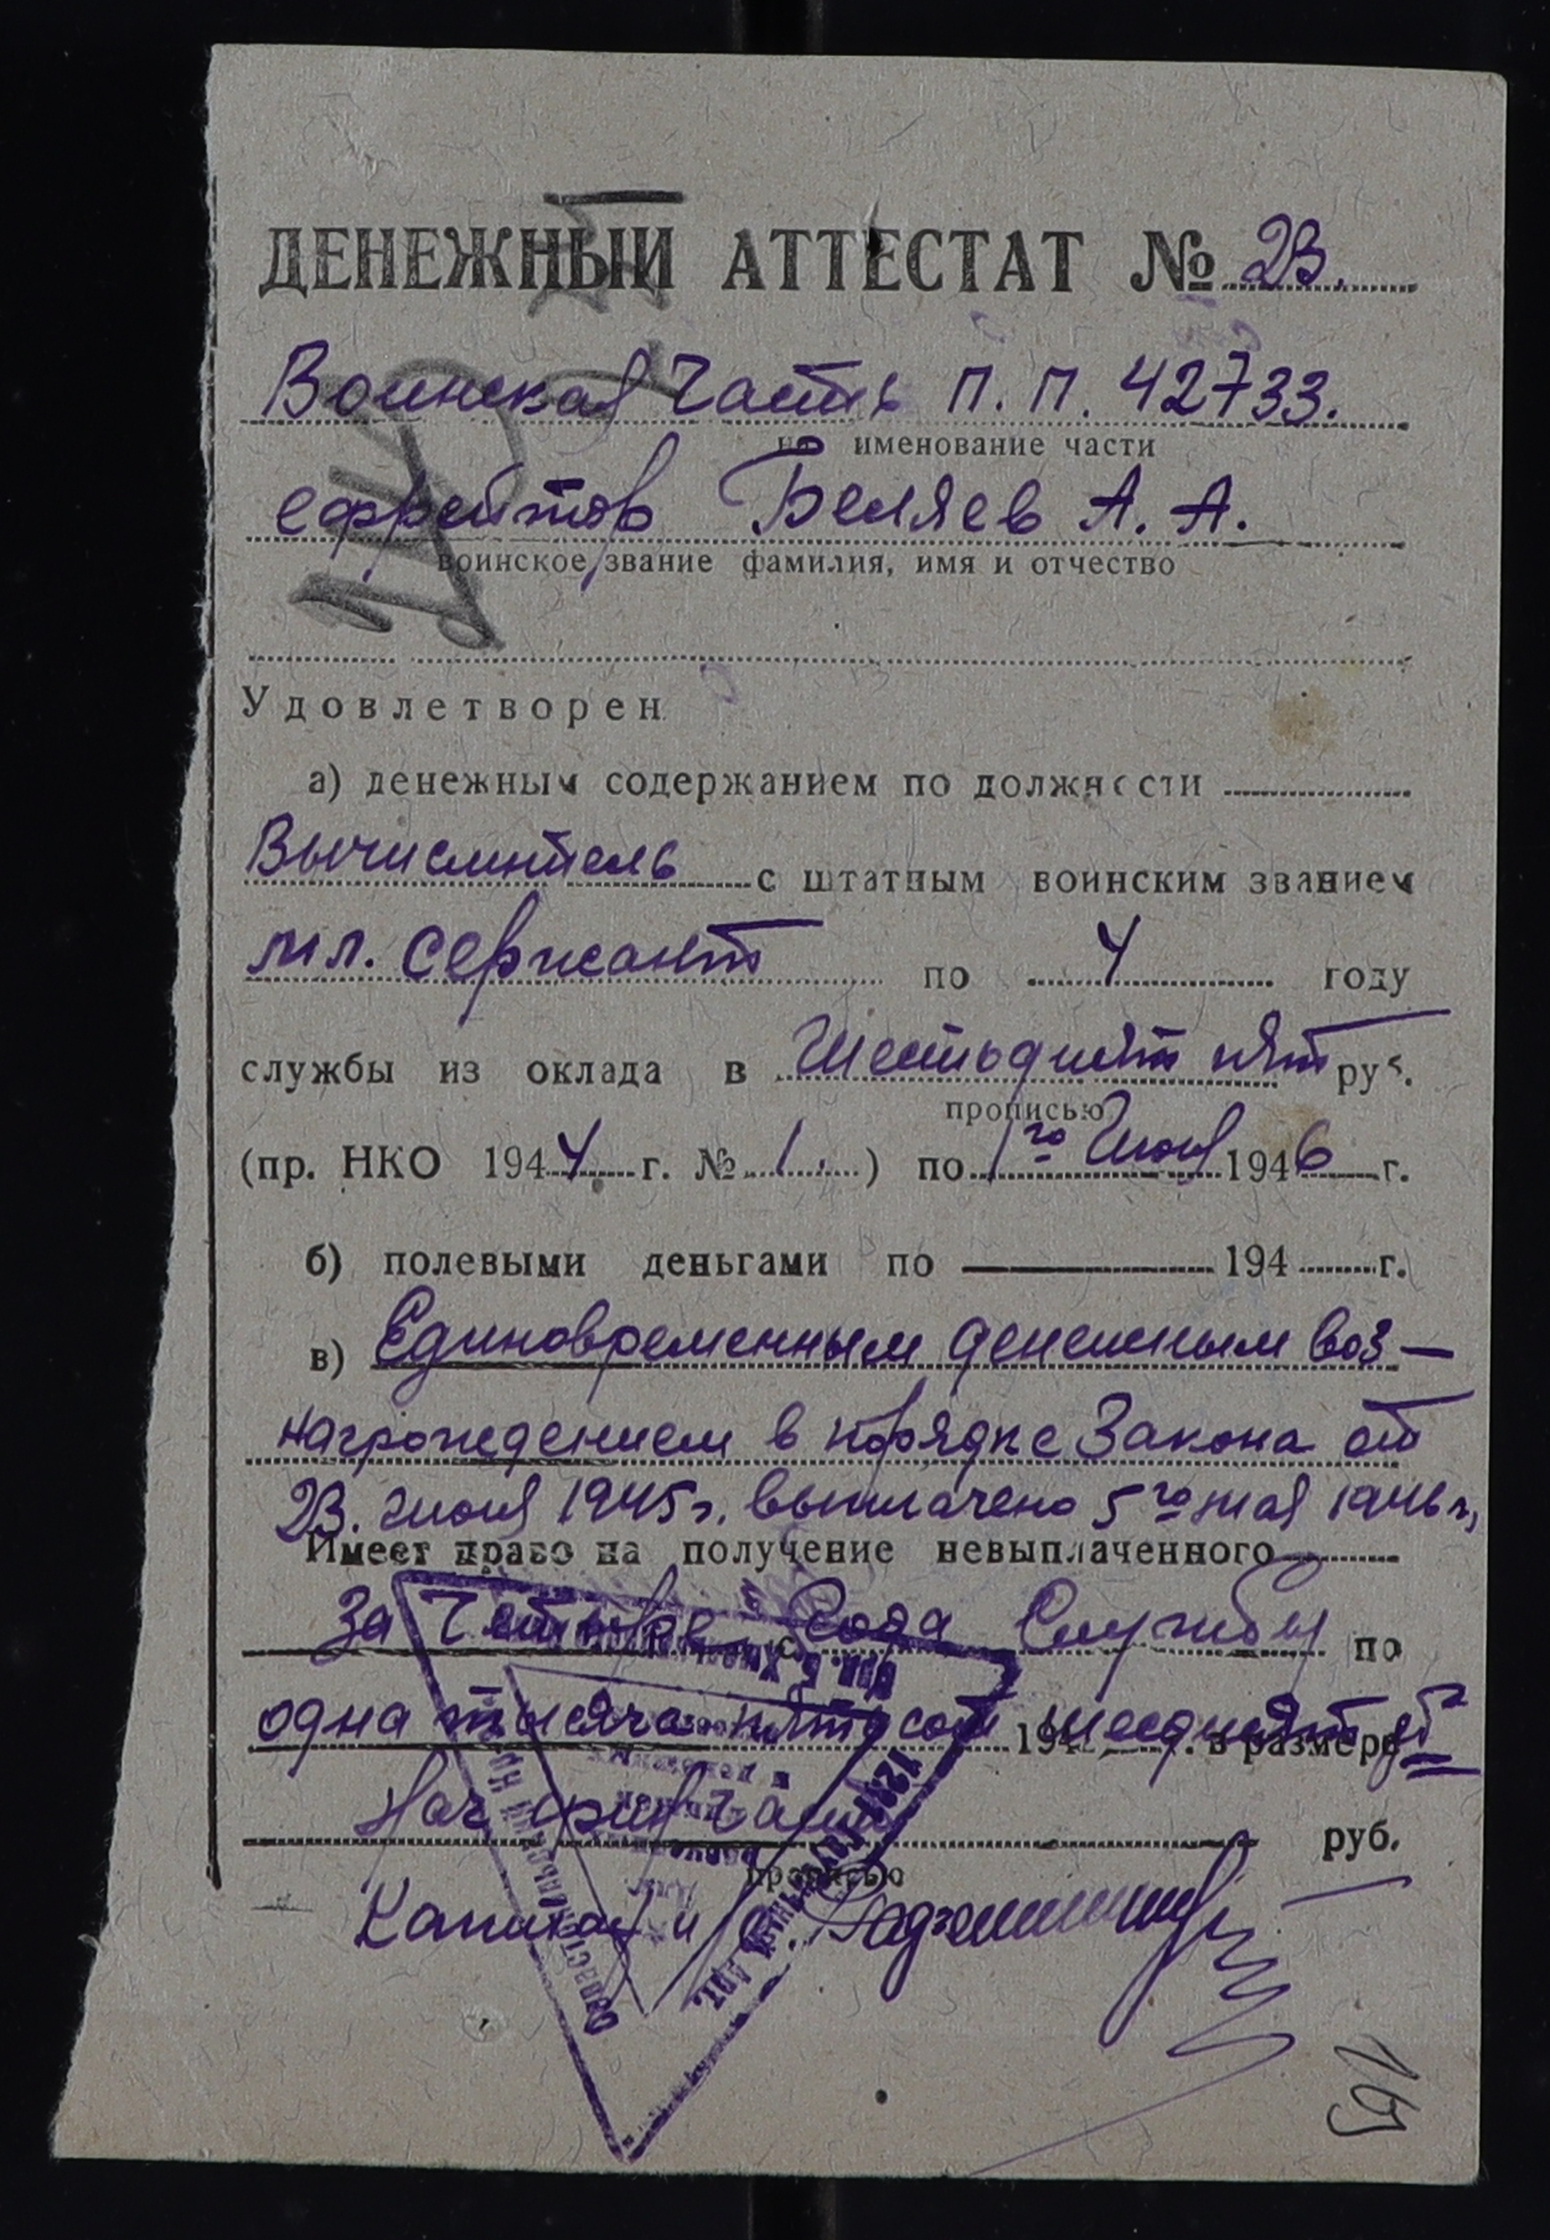 ДЕНЕЖНЫЙ АТТЕСТАТ № 23.
Воинская Часть П. П. 42733.
наименование части
ефрейтор Беляев А. А.
воинское звание фамилия, имя и отчество
Удовлетворен
а) денежным содержанием по должности
Вычислитель с штатным воинским званием
мл. сержант по 4 году
службы из оклада в Шестьдесят пять руб.
прописью
(пр. НКО 1944 г. № 1.) по 1го Июня 1946 г.
б) полевыми деньгами по 194 г.
в) Единовременным денежным воз-
награждением в порядке Закона от
23. июня 1945 г. выплачено 5го мая 1946 г.,
Имеет право на получение невыплаченного
За Четыре с Года Службы по
одна тысяча пятьсот шесдесят 194 г. в размере
Нач фин Части
руб.
прописью
Капитан и/с
165